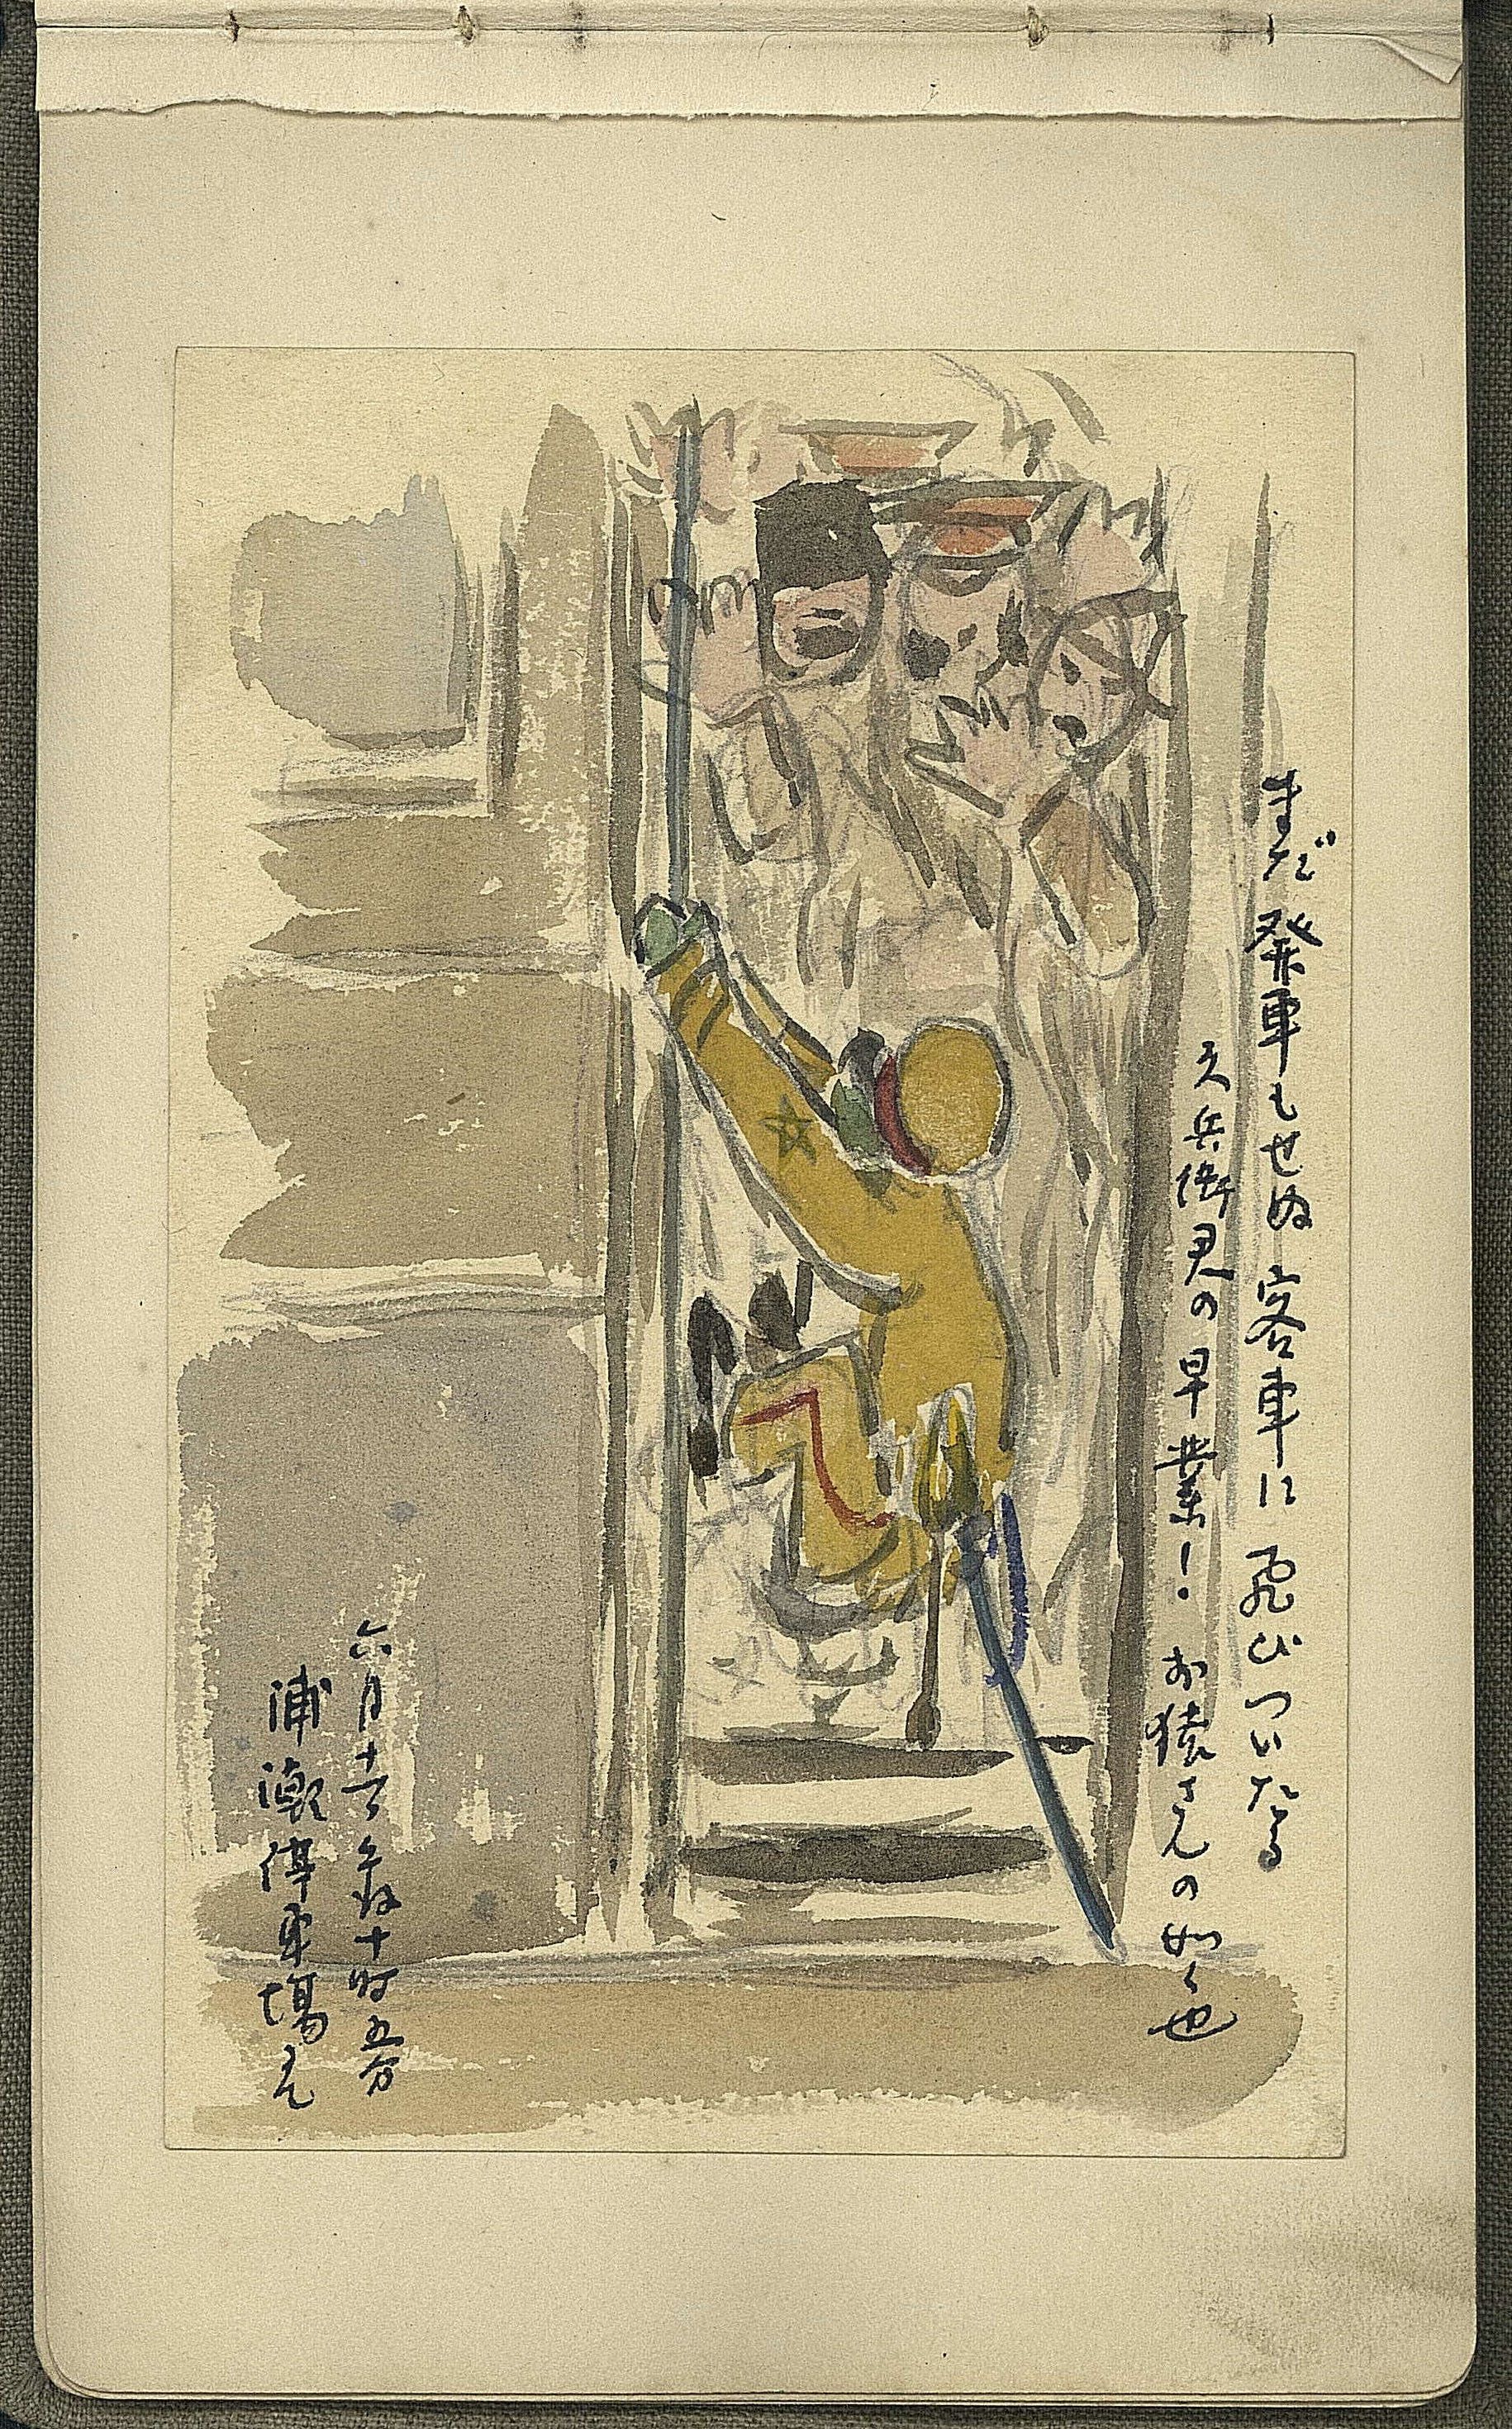 まだ発車もせぬ客車に飛びついたる
久兵衛君の早業！お猿さんの如く也
六月十一日午後十時五分
浦潮停車場にて